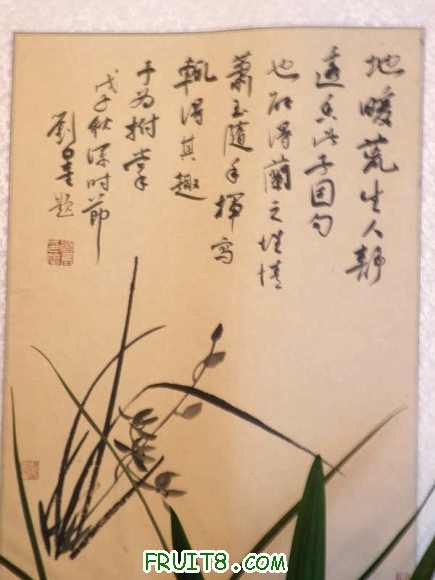 地暖荒生人静
遠香此子固句
也得蘭之性情
蕭玉隨手揮寫
輒得其趣
予为拊掌
戊子秋深时節
劉題
FRUIT8.COM